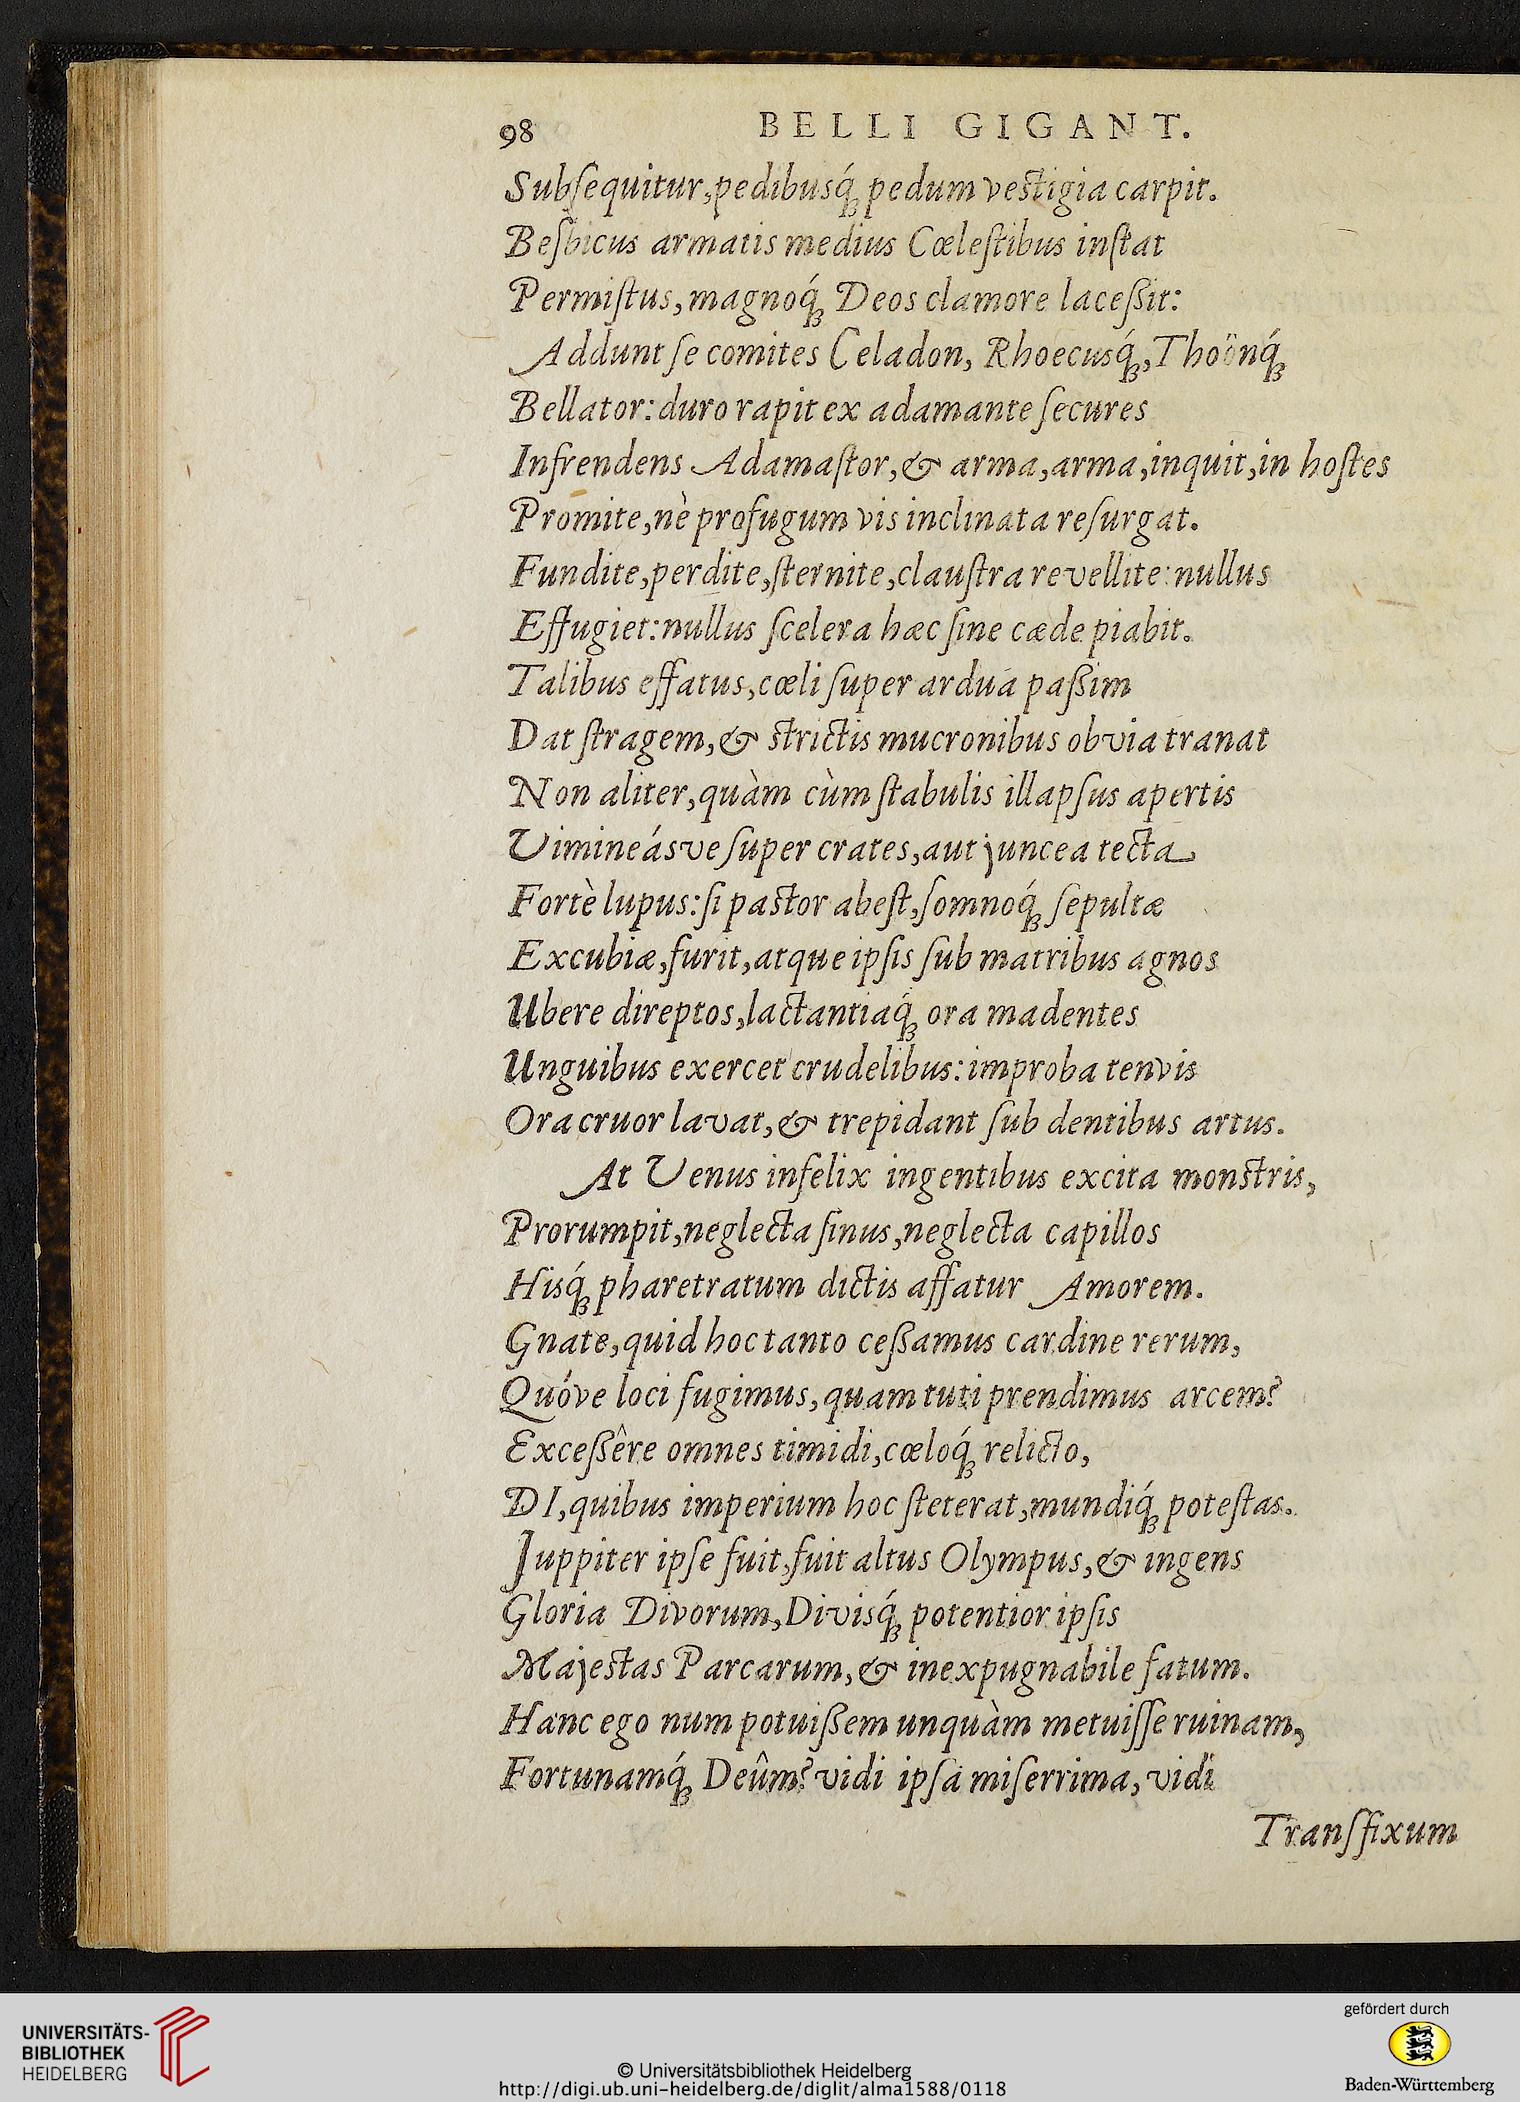 98 BELLI GIGANT.
Subſequitur, pedibusq́ꝫ pedum veſtigia carpit.
Beſbicus armatis medius Cœleſtibus inſtat
Permiſtus, magnoq́ꝫ Deos clamore laceßit:
Addunt ſe comites Celadon, Rhoecusq́ꝫ, Thoönq́ꝫ
Bellator: duro rapit ex adamante ſecures
Infrendens Adamaſtor, & arma, arma, inquit, in hoſtes
Promite, nè profugum vis inclinata reſurgat.
Fundite, perdite, ſternite, clauſtra revellite: nullus
Effugiet: nullus ſcelera hæc ſine cæde piabit.
Talibus effatus, cœli ſuper ardua paßim
Dat ſtragem, & ſtrictis mucronibus obvia tranat
Non aliter, quàm cùm ſtabulis illapſus apertis
Vimineásve ſuper crates, aut juncea tecta
Fortè lupus: ſi paſtor abeſt, ſomnoq́ꝫ ſepultæ
Excubiæ, furit, atque ipſis ſub matribus agnos
Ubere direptos, lactantiaq́ꝫ ora madentes
Unguibus exercet crudelibus: improba tenvis
Ora cruor lavat, & trepidant ſub dentibus artus.
At Venus infelix ingentibus excita monſtris,
Prorumpit, neglecta ſinus, neglecta capillos
Hisq́ꝫ pharetratum dictis affatur Amorem.
Gnate, quid hoc tanto ceßamus cardine rerum,
Quóve loci fugimus, quam tuti prendimus arcem?
Exceßêre omnes timidi, cœloq́ꝫ relicto,
DI, quibus imperium hoc ſteterat, mundiq́ꝫ poteſtas.
Juppiter ipſe fuit, fuit altus Olympus, & ingens
Gloria Divorum, Divisq́ꝫ potentior ipſis
Majeſtas Parcarum, & inexpugnabile fatum.
Hanc ego num potuißem unquàm metuiſſe ruinam,
Fortunamq́ꝫ Deûm? vidi ipſa miſerrima, vidi
Transfixum
UNIVERSITÄTS-
BIBLIOTHEK
HEIDELBERG
© Universitätsbibliothek Heidelberg
http://digi.ub.uni-heidelberg.de/diglit/alma1588/0118
gefördert durch
Baden-Württemberg